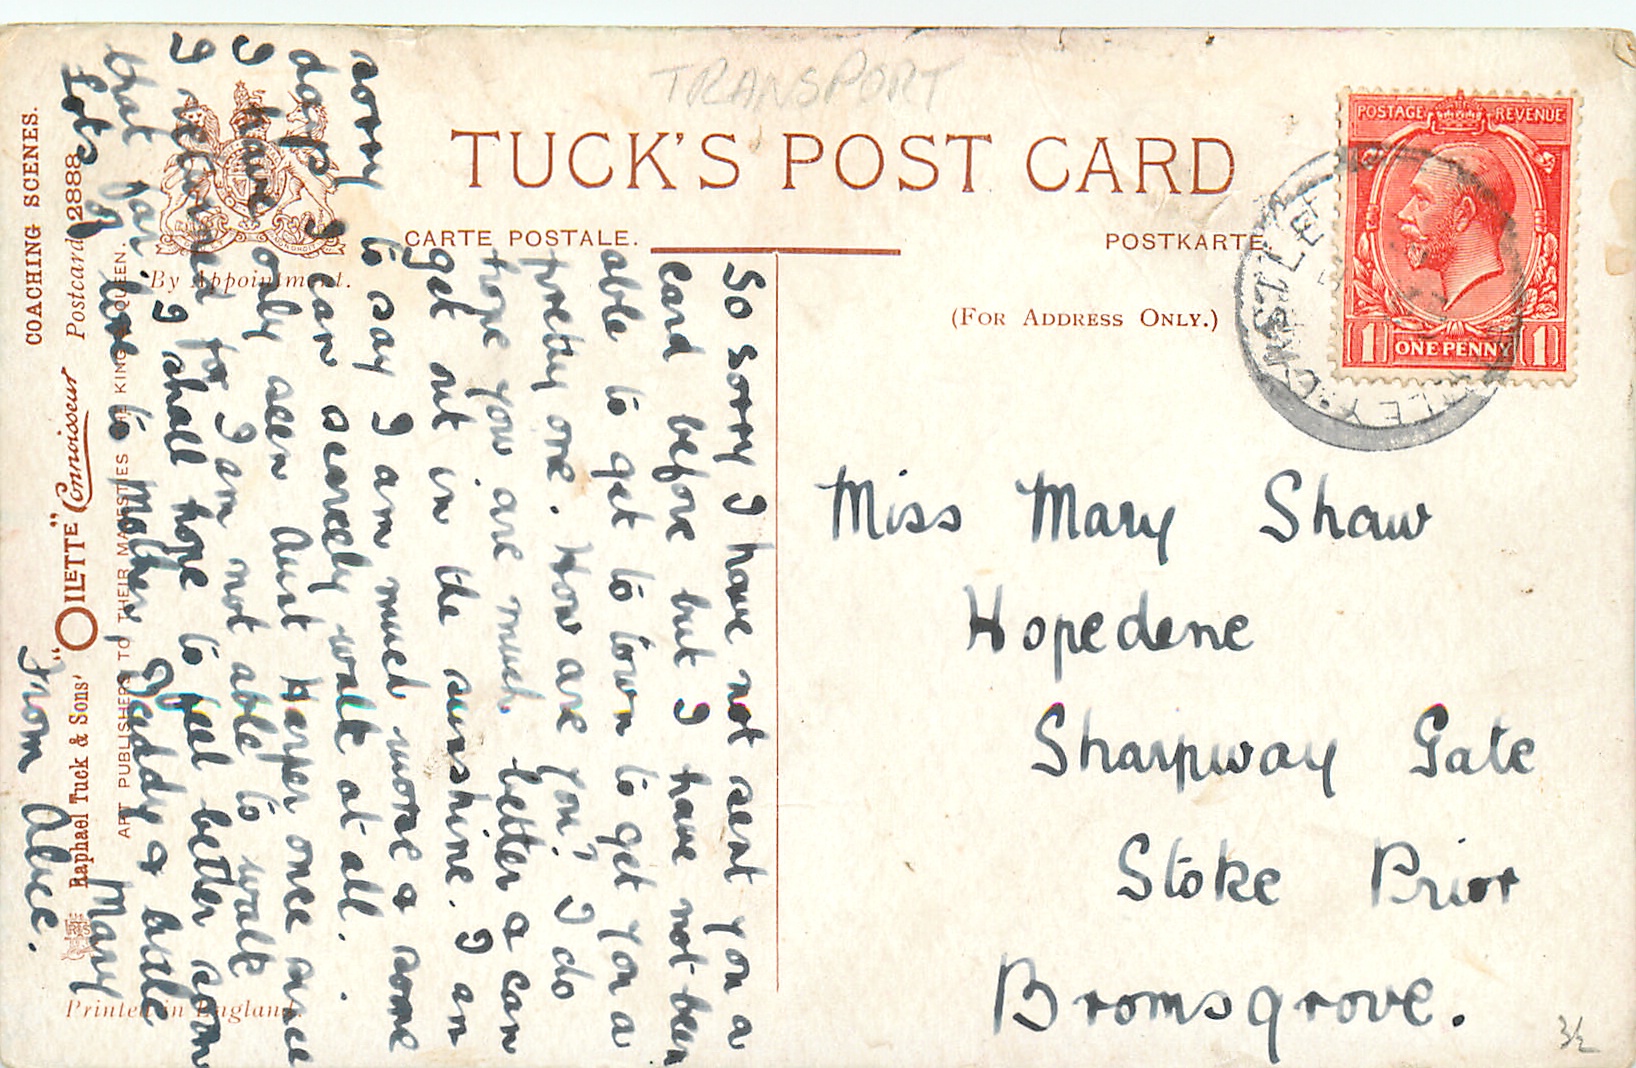 TRANSPORT
TUCK'S POST CARD
CARTE POSTALE.
POSTKARTE
(FOR ADDRESS ONLY.)
By Appointment.
POSTAGE REVENUE
1 ONE PENNY 1
COACHING SCENES.
Raphael Tuck & Sons' "OILETTE" Connoisseur Postcard 2888
ART PUBLISHERS TO THEIR MAJESTIES THE KING QUEEN.
Printed in England.
So sorry I have not sent you a
card before but I have not been
able to get to town to get you a
pretty one. How are you? I do
hope you are much better & can
get out in the sunshine. I am
sorry to say I am much worse & some
days I can scarcely walk at all.
I have only seen Aunt Harper once since
I returned for I am not able to walk
that far. I shall hope to feel better soon
Lots of love to Mother, Daddy & little
Mary
From Alice.
Miss Mary Shaw
Hopedene
Sharpway Gate
Stoke Prior
Bromsgrove.
3/2